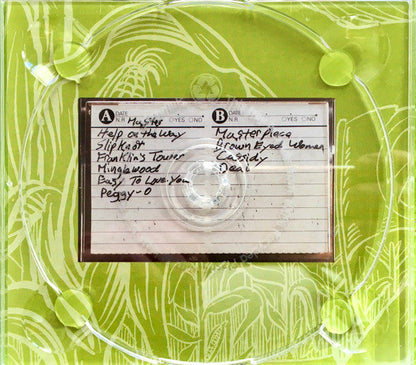 A DATE N.R. Master ○YES ○NO
Help on the Way
Slipknot
Franklin's Tower
Minglewood
Easy To Love You
Peggy-O
B DATE N.R. ○YES ○NO
Masterpiece
Brown Eyed Women
Cassidy
Deal